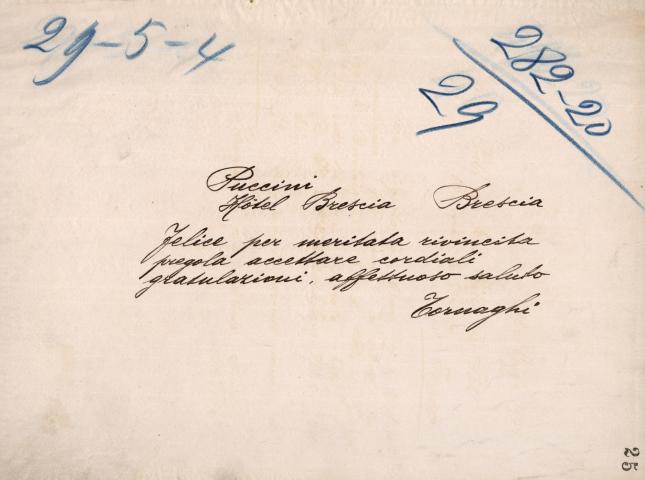 29-5-4
282-20
29
Puccini
Hôtel Brescia Brescia
Felice per meritata rivincita
pregola accettare cordiali
gratulazioni, affettuoso saluto
Tornaghi
25